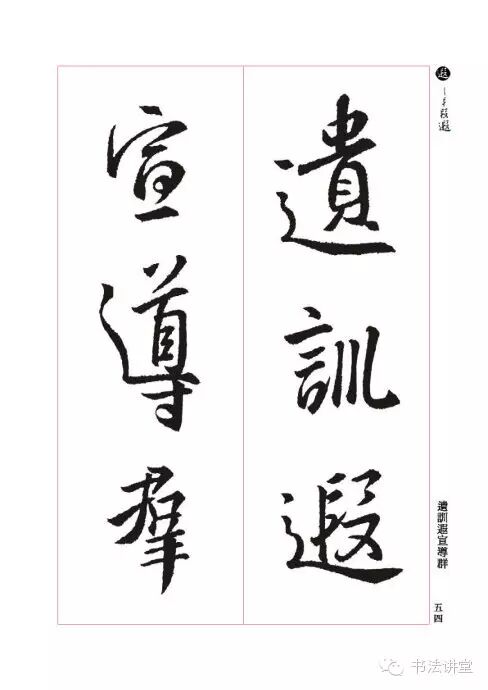 遺訓遐
宣導羣
遐
遺訓遐宣導群
五四
书法讲堂